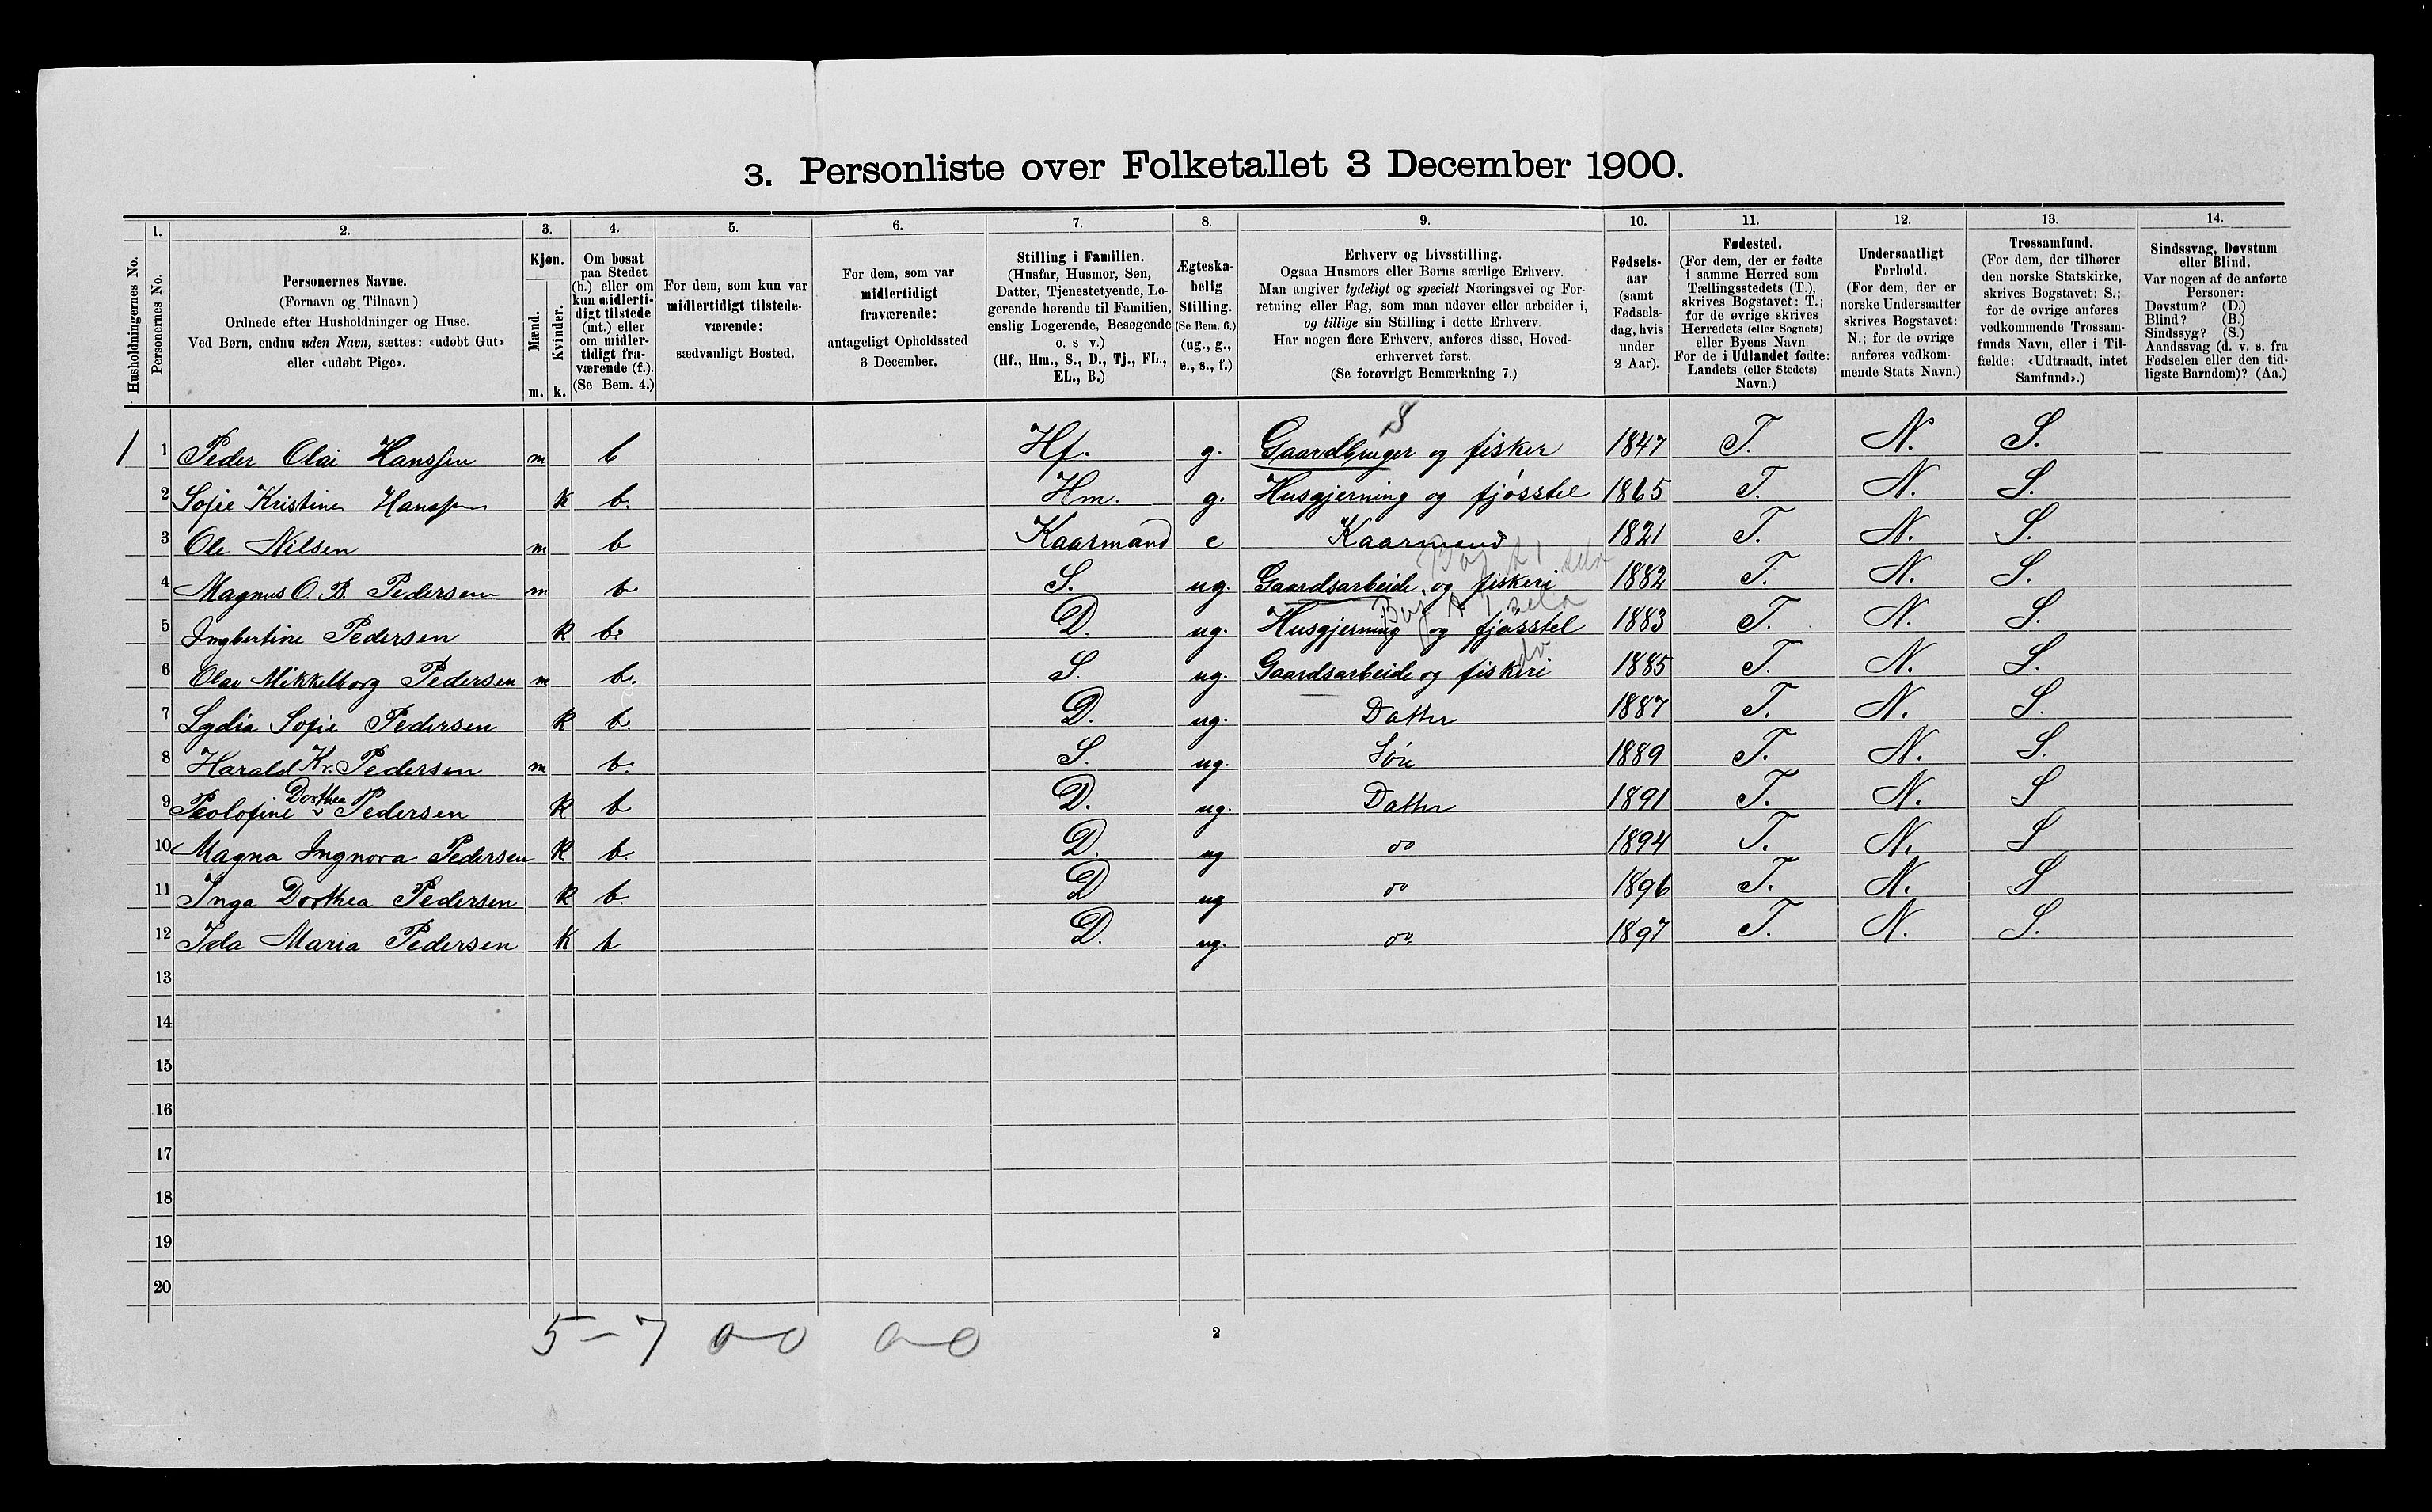 3. Personliste over Folketallet 3 December 1900.
1. 2. 3. 4. 5. 6. 7. 8. 9. 10. 11. 12. 13. 14.
Husholdningernes No.
Personernes No.
Personernes Navne.
(Fornavn og Tilnavn)
Ordnede efter Husholdninger og Huse.
Ved Børn, endnu uden Navn, sættes: «udøbt Gut»
eller «udøbt Pige».
Kjøn.
Mænd.
Kvinder.
m. k.
Om bosat
paa Stedet
(b.) eller om
kun midlerti-
digt tilstede
(mt.) eller
om midler-
tidigt fra-
værende (f.).
(Se Bem. 4.)
For dem, som kun var
midlertidigt tilstede-
værende:
sædvanligt Bosted.
For dem, som var
midlertidigt
fraværende:
antageligt Opholdssted
3 December.
Stilling i Familien.
(Husfar, Husmor, Søn,
Datter, Tjenestetyende, Lo-
gerende hørende til Familien,
enslig Logerende, Besøgende
o. s v.)
(Hf., Hm., S., D., Tj., FL.,
EL., B.)
Ægteska-
belig
Stilling.
(Se Bem. 6.)
(ug., g.,
e., s., f.)
Erhverv og Livsstilling.
Ogsaa Husmors eller Børns særlige Erhverv.
Man angiver tydeligt og specielt Næringsvei og For-
retning eller Fag, som man udøver eller arbeider i,
og tillige sin Stilling i dette Erhverv.
Har nogen flere Erhverv, anføres disse, Hoved-
erhvervet først.
(Se forøvrigt Bemærkning 7.)
Fødsels-
aar
(samt
Fødsels-
dag, hvis
under
2 Aar).
Fødested.
(For dem, der er fødte
i samme Herred som
Tællingsstedets (T.),
skrives Bogstavet: T.;
for de øvrige skrives
Herredets (eller Sognets)
eller Byens Navn.
For de i Udlandet fødte:
Landets (eller Stedets)
Navn.)
Undersaatligt
Forhold.
(For dem, der er
norske Undersaatter
skrives Bogstavet:
N.; for de øvrige
anføres vedkom-
mende Stats Navn.)
Trossamfund.
(For dem, der tilhører
den norske Statskirke,
skrives Bogstavet: S.;
for de øvrige anføres
vedkommende Trossam-
funds Navn, eller i Til-
fælde: «Udtraadt, intet
Samfund».)
Sindssvag, Døvstum
eller Blind.
Var nogen af de anførte
Personer:
Døvstum? (D.)
Blind? (B.)
Sindssyg? (S.)
Aandssvag (d. v. s. fra
Fødselen eller den tid-
ligste Barndom)? (Aa.)
S
1 1 Peder Olai Hanssen m b Hf. g. Gaardbruger og fisker 1847 T. N. S.
2 Sofie Kristine Hanssen k b. Hm. g. Husgjerning og fjøsstel 1865 T. N. S.
3 Ole Nilsen m b Kaarmand e Kaarmand 1821 T. N. S.
4 Magnus O. B. Pedersen m b S. ug. Gaardsarbeide og fiskeri 1882 T. N. S.
5 Ingbertine Pedersen k b. D. ug. Husgjerning og fjøsstel 1883 T. N. S.
do
6 Olav Mikkelborg Pedersen m b. S. ug. Gaardsarbeide og fiskeri 1885 T. N. S.
7 Lydia Sofie Pedersen k b. D. ug. Datter 1887 T. N. S.
8 Harald Kr. Pedersen m b. S. ug. Søn 1889 T. N. S.
Dorthea
9 Peolofine Pedersen k b D. ug. Datter 1891 T. N. S
10 Magna Ingnora Pedersen k b. D. ug do 1894 T. N. S
11 Inga Dorthea Pedersen k b. D ug do 1896 T. N. S
12 Ida Maria Pedersen k b D. ug. do 1897 T. N. S.
13
14
15
16
17
18
19
20
5-7 0-0 0-0
2